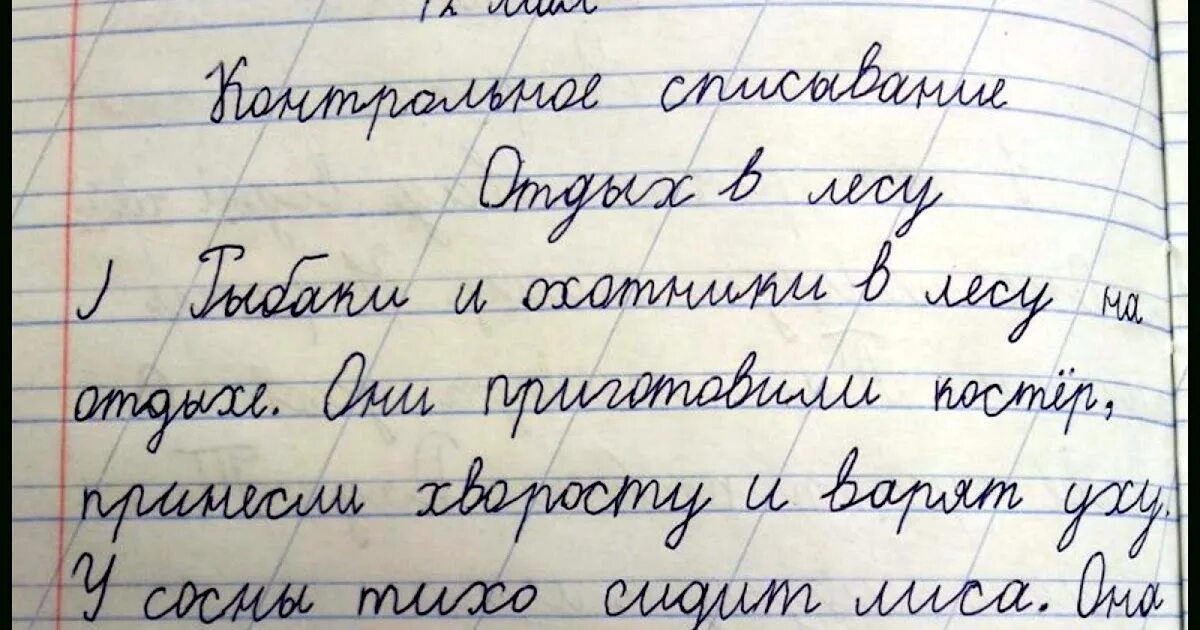 12 мая
Контрольное списывание
Отдых в лесу
Рыбаки и охотники в лесу на
отдыхе. Они приготовили костёр,
принесли хворосту и варят уху.
У сосны тихо сидит лиса. Она